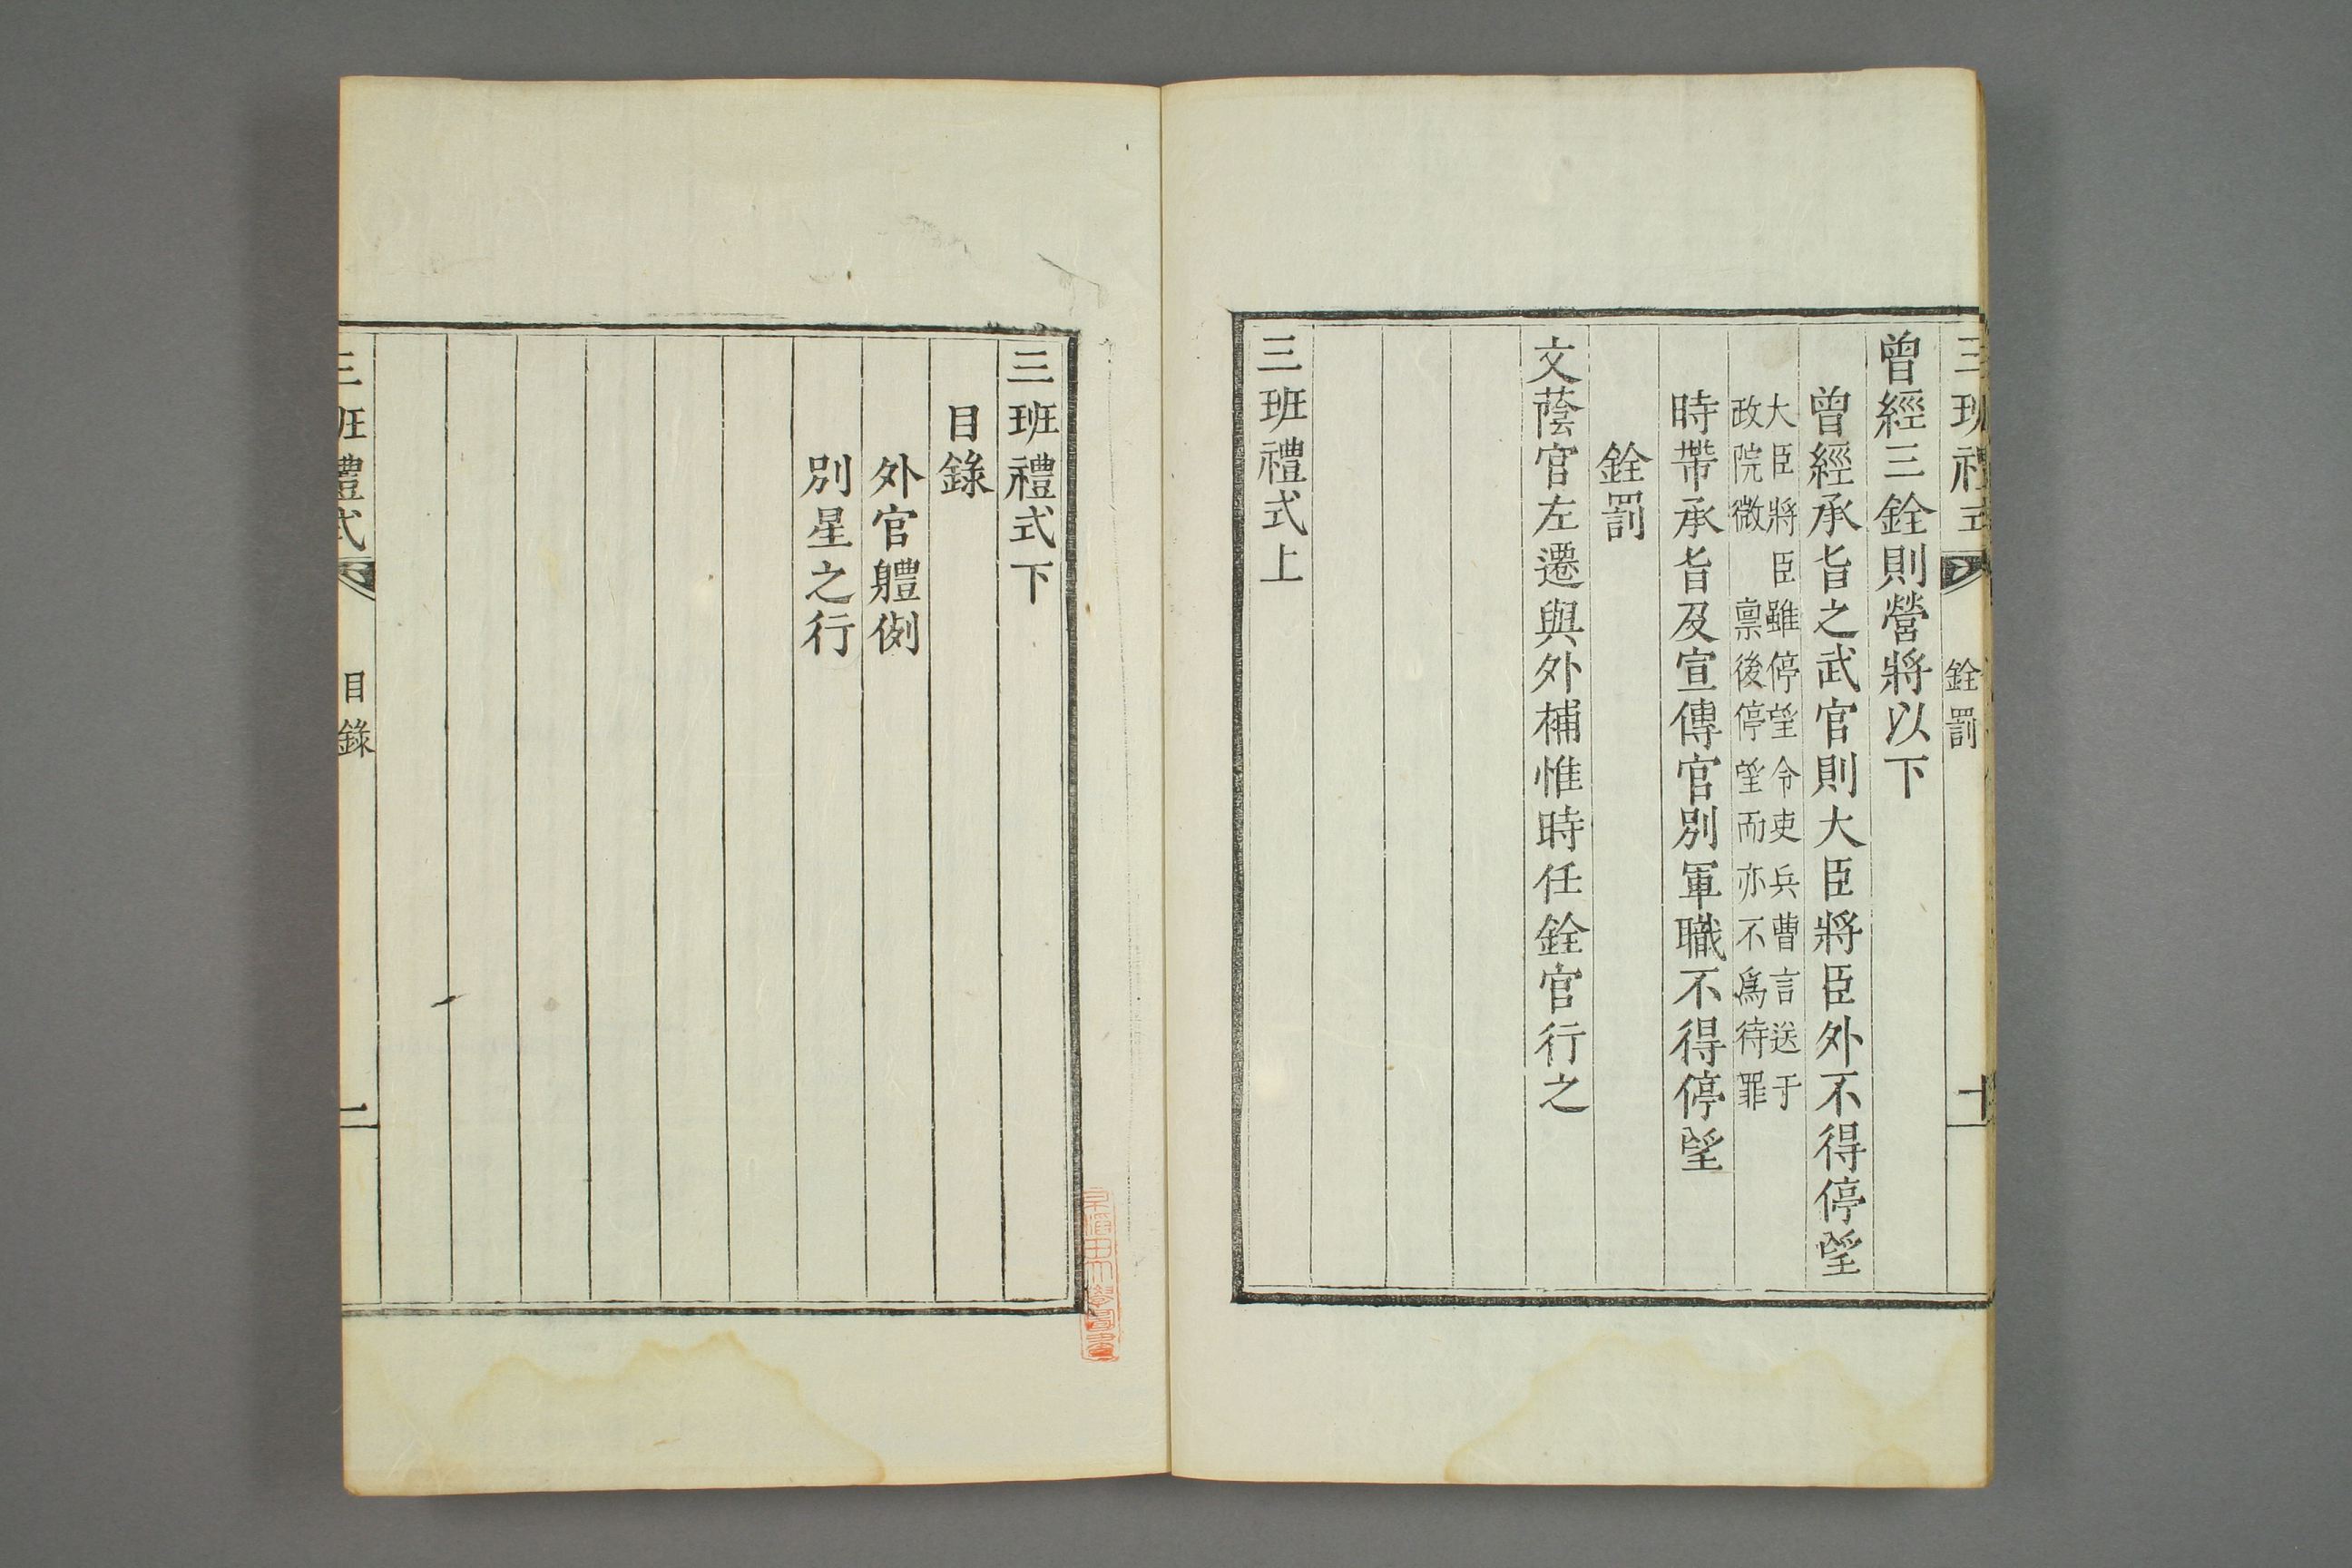 三班禮式
銓罰
十
曾經三銓則營將以下
曾經承旨之武官則大臣將臣外不得停望
大臣將臣雖停望令吏兵曹言送于
政院微稟後停望而亦不爲待罪
時帶承旨及宣傳官別軍職不得停望
銓罰
文蔭官左遷與外補惟時任銓官行之
三班禮式上
三班禮式下
目錄
外官軆例
別星之行
三班禮式
目錄
一
早稻田大學圖書